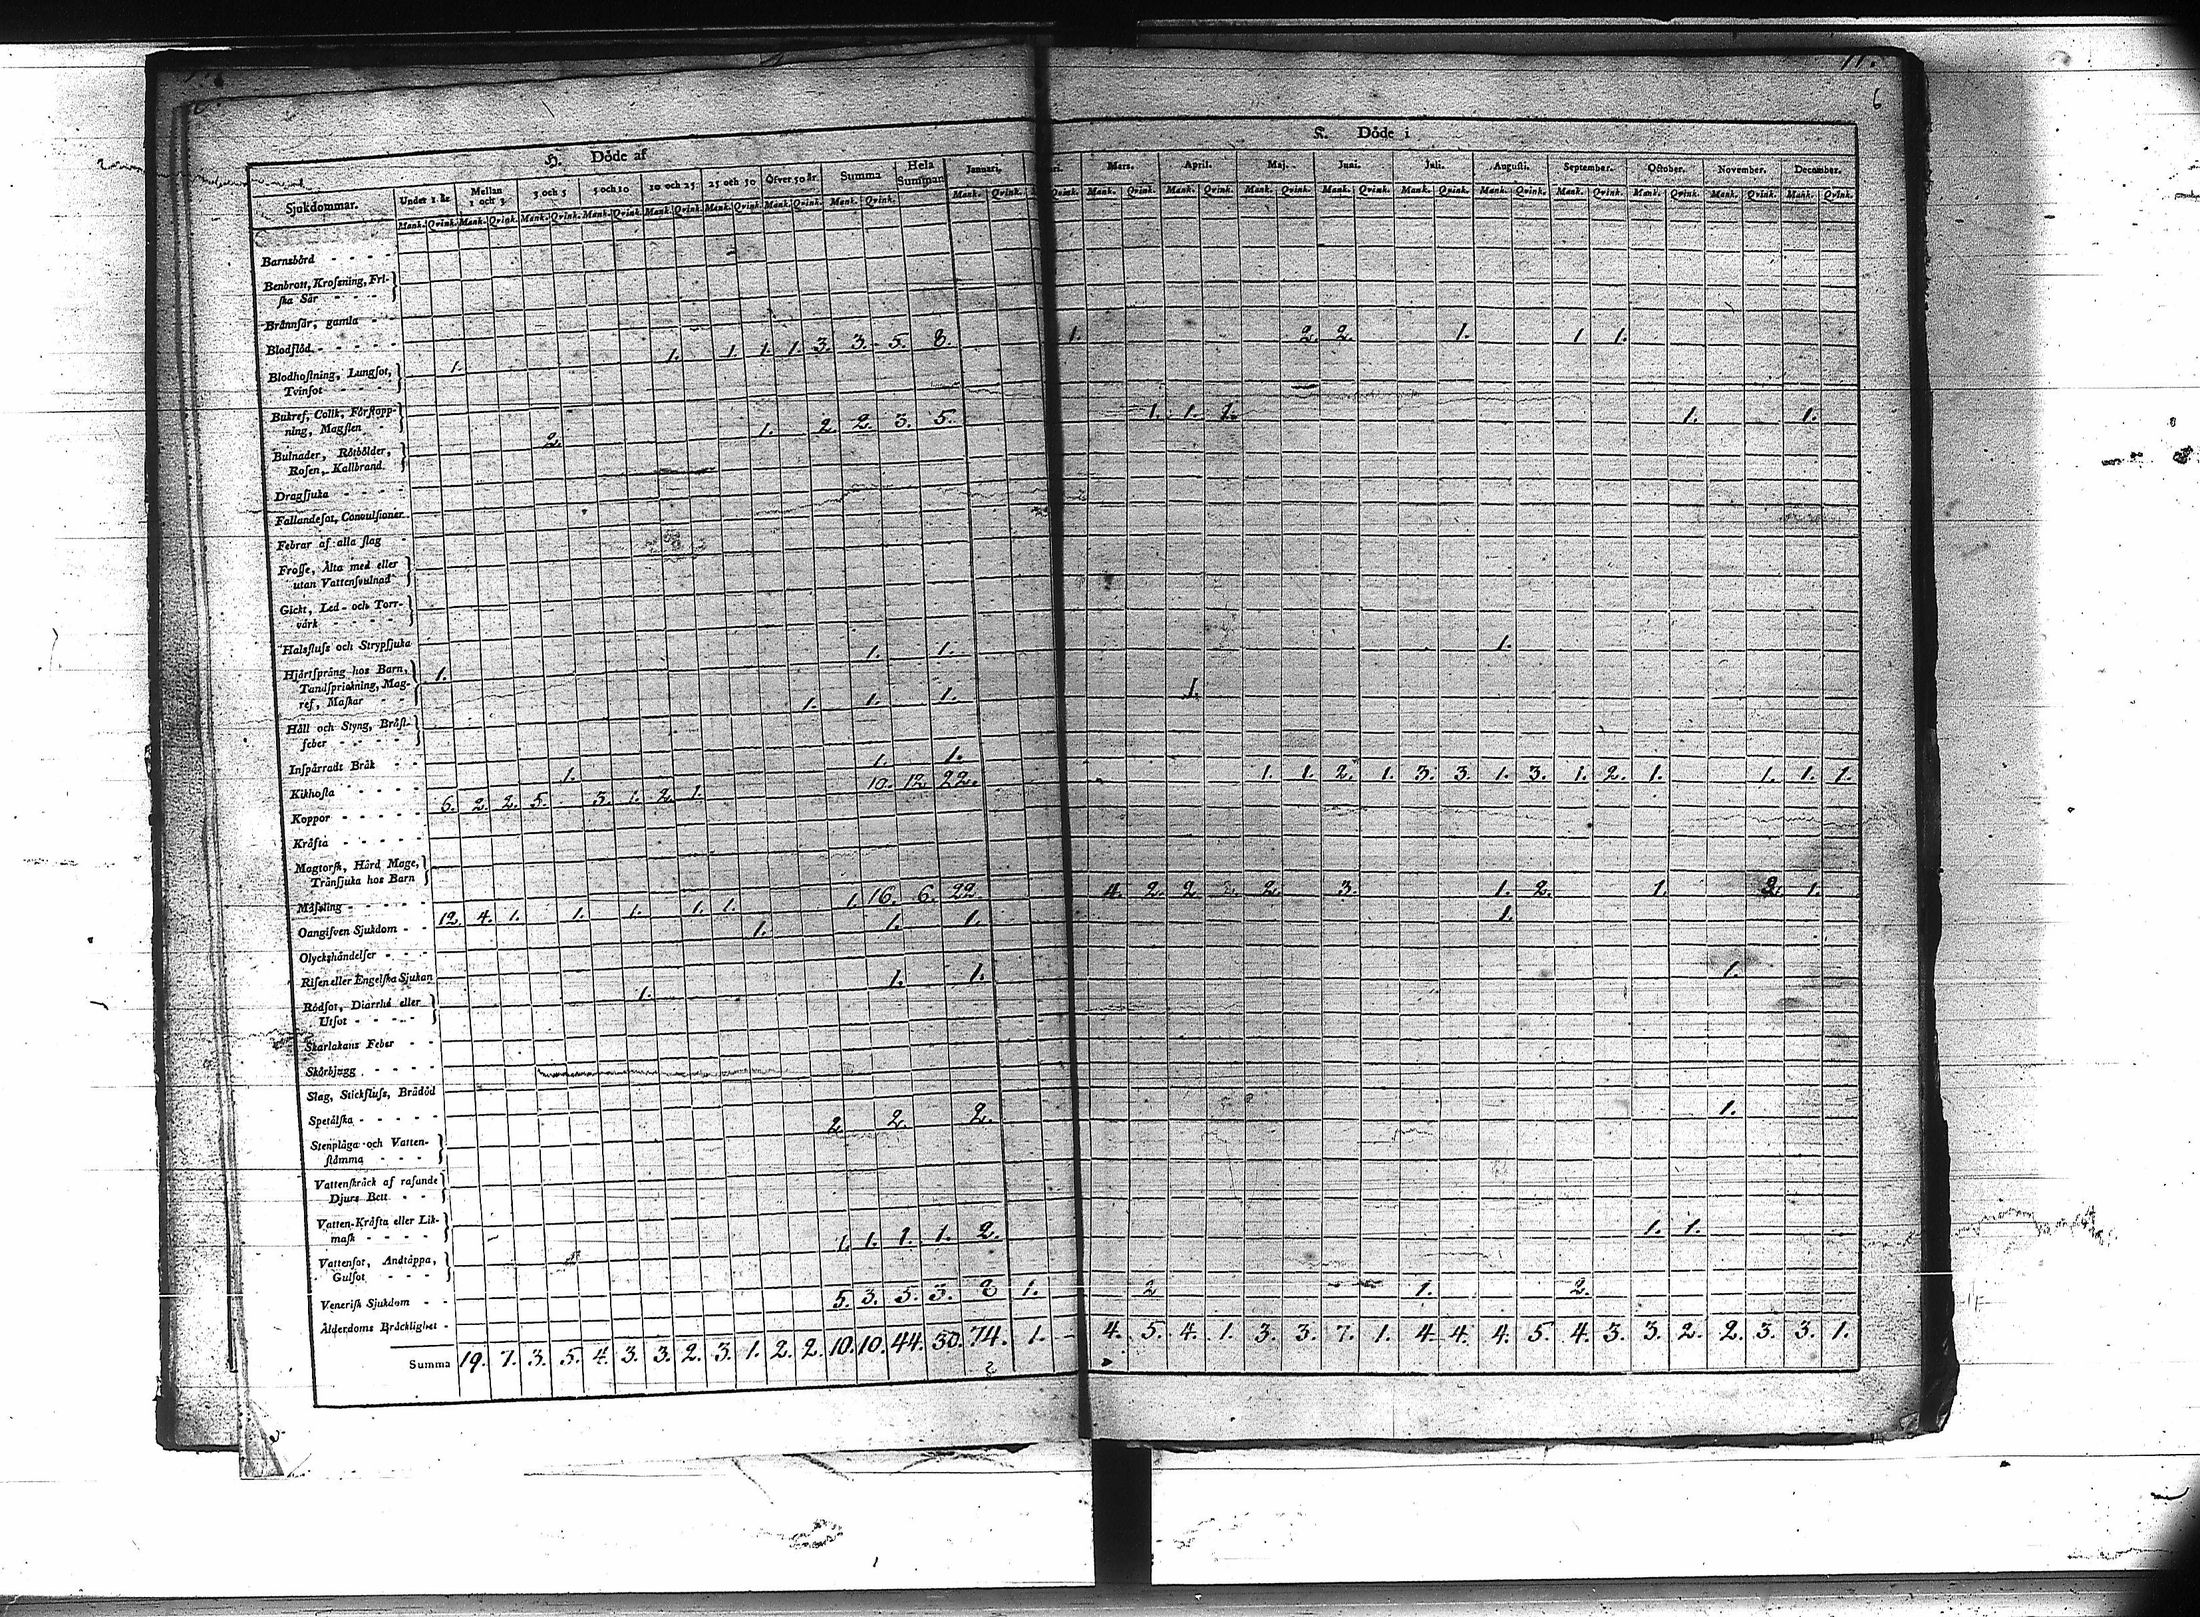 11.
6
H. Döde af
K. Döde i
Sjukdommar. Under 1. år Mellan 1 och 3. 3 och 5 5 och 10 10 och 25 25 och 50 Öfver 50 år. Summa Hela Summan Januari, Mars. April. Maj. Juni. Juli. Augusti. September. October. November. December.
Mank. Qvink. Mank. Qvink. Mank. Qvink. Mank. Qvink. Mank. Qvink. Mank. Qvink. Mank. Qvink. Mank. Qvink. Mank. Qvink. Qvink. Mank. Qvink. Mank. Qvink. Mank. Qvink. Mank. Qvink. Mank. Qvink. Mank. Qvink. Mank. Qvink. Mank. Qvink. Mank. Qvink. Mank. Qvink.
Barnsbörd - - - -
Benbrott, Krossning, Fri-
ska Sår - - - -
Brännsår, gamla - -
Blodflöd - - - - -
Blodhostning, Lungsot, 1. 1. 1. 1. 1. 3. 3. 5. 8. 1. 2. 2. 1. 1. 1.
Tvinsot - - - -
Bukref, Colik, Förstopp-
ning, Magsten -
Bulnader, Rötbölder, 2. 1. 2. 2. 3. 5. 1. 1. 1. 1. 1.
Rosen, Kallbrand.
Dragsjuka - - - -
Fallandesot, Convulsioner
Febrar af alla slag -
Frosse, Älta med eller
utan Vattensvulnad
Gickt, Led- och Torr-
värk - - - -
Halsfluss och Strypsjuka
Hjärtsprång hos Barn, 1. 1. 1. 1.
Tandsprickning, Mag-
ref, Maskar - - 1. 1. 1. 1.
Håll och Styng, Bröst-
feber - - - -
Inspärradt Bråk - -
Kikhosta - - - - 1. 1. 1.
Koppor - - - - - 6. 2. 2. 5. 3. 1. 2. 1. 10. 12. 22. 1. 1. 2. 1. 3. 3. 1. 3. 1. 2. 1. 1. 1. 1.
Kräfta - - - - -
Magtorsk, Hård Mage,
Tränsjuka hos Barn
Mässling - - - - -
Oangifven Sjukdom - - 12. 4. 1. 1. 1. 1. 1. 1. 16. 6. 22. 4. 2. 2. 2. 3. 1. 2. 1. 2. 1.
Olyckshändelser - - - 1. 1. 1. 1.
Risen eller Engelska Sjukan
Rödsot, Diarrhé eller 1. 1. 1. 1.
Utsot - - - -
Skarlakans Feber - -
Skörbjugg - - - - -
Slag, Stickfluss, Brådöd
Spetälska - - - - - 2. 2. 2. 1.
Stenplåga och Vatten-
stämma - - -
Vattenskräck af rasande
Djurs Bett - -
Vatten-Kräfta eller Lik-
mask - - - -
Vattensot, Andtäppa, 1. 1. 1. 1. 2. 1. 1.
Gulsot - - -
Venerisk Sjukdom - -
Ålderdoms Bräcklighet - 5. 3. 5. 3. 8 1. 2 1. 2.
Summa 19. 7. 3. 5. 4. 3. 3. 2. 3. 1. 2. 2. 10. 10. 44. 30. 74. 1. - 4. 5. 4. 1. 3. 3. 7. 1. 4. 4. 4. 5. 4. 3. 3. 2. 2. 3. 3. 1.